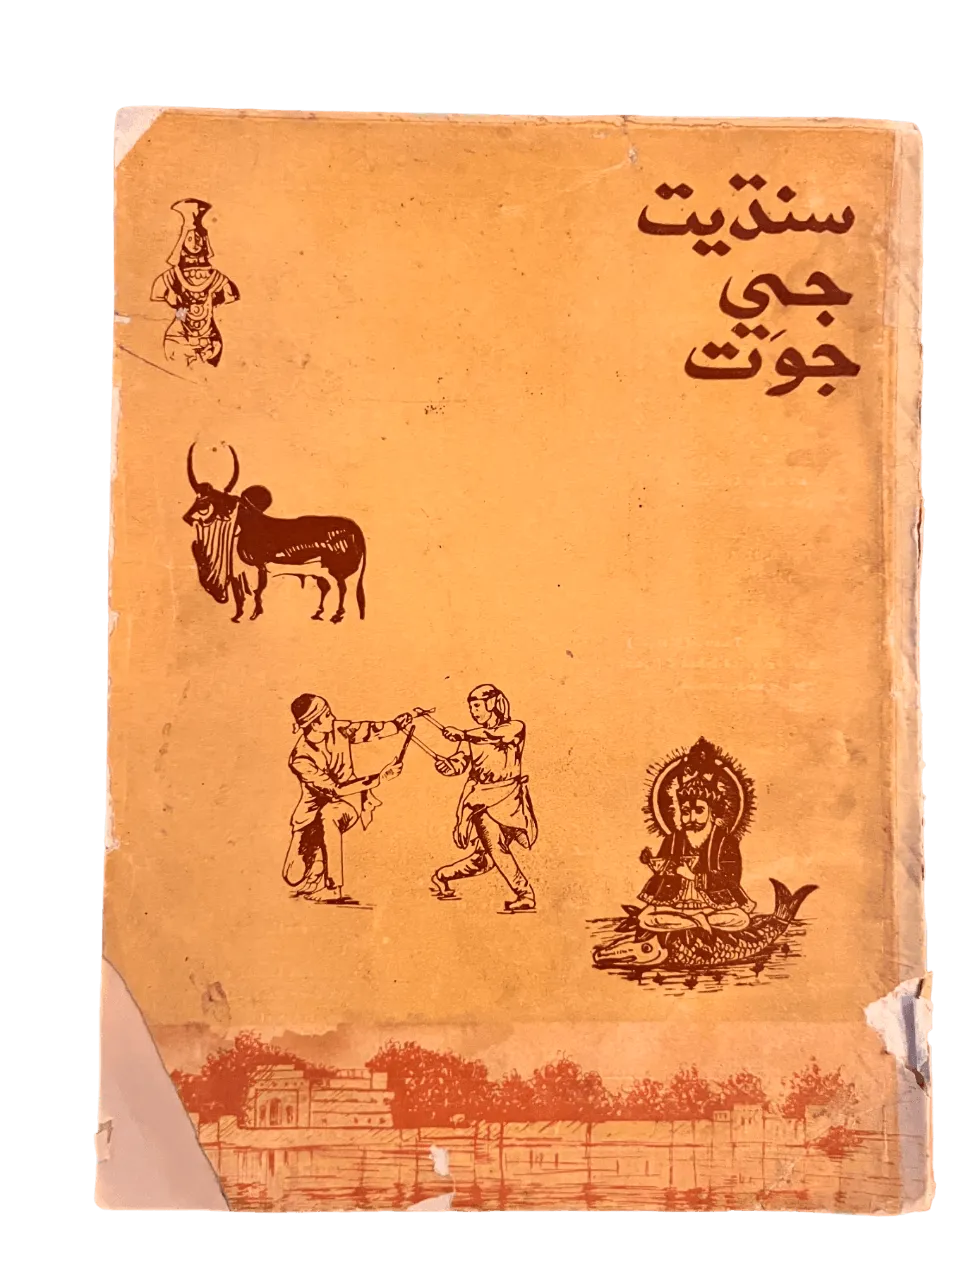 سنڌيت
جي
جوَت